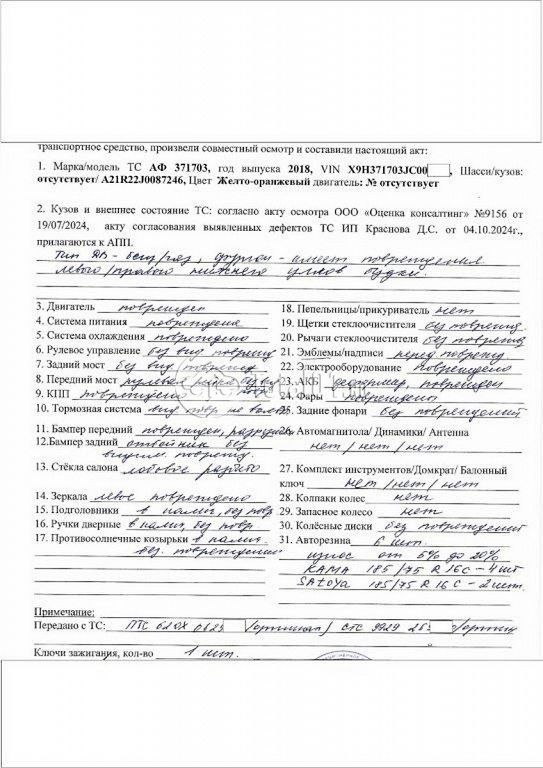 транспортное средство, произвели совместный осмотр и составили настоящий акт:
1. Марка/модель ТС АФ 371703, год выпуска 2018, VIN X9H371703JC00 , Шасси/кузов:
отсутствует/ A21R22J0087246, Цвет Желто-оранжевый двигатель: № отсутствует
2. Кузов и внешнее состояние ТС: согласно акту осмотра ООО «Оценка консалтинг» №9156 от
19/07/2024, акту согласования выявленных дефектов ТС ИП Краснова Д.С. от 04.10.2024г.,
прилагаются к АПП.
Тип ДВ - бенз/газ, фургон - имеет повреждения
левого/правого нижнего углов будки.
3. Двигатель поврежден
4. Система питания повреждена
5. Система охлаждения повреждено
6. Рулевое управление без вид. поврежд
7. Задний мост без вид. поврежд
8. Передний мост рулевая без вид повр.
9. КПП повреждена
10. Тормозная система вид. повр. не
11. Бампер передний поврежден,
12.Бампер задний отбойник без
видим. поврежд.
13. Стёкла салона лобовое разбито
14. Зеркала левое повреждено
15. Подголовники в налич, без повр
16. Ручки дверные в налич, без повр
17. Противосолнечные козырьки в налич.
без. повреждений
18. Пепельницы/прикуриватель нет
19. Щетки стеклоочистителя без поврежд
20. Рычаги стеклоочистителя без поврежд
21. Эмблемы/надписи перед поврежд
22. Электрооборудование повреждено
23. АКБ поврежден
24. Фары повреждены
25. Задние фонари без повреждений
26. Автомагнитола/ Динамики/ Антенна
нет / нет / нет
27. Комплект инструментов/Домкрат/ Балонный
ключ нет / нет / нет
28. Колпаки колес нет
29. Запасное колесо нет
30. Колёсные диски без повреждений
31. Авторезина 6 шт.
износ от 5% до 20%
KAMA 185/75 R 16C - 4 шт
SATOYA 185/75 R 16C - 2 шт.
Примечание:
Передано с ТС: ПТС 62ОХ 0623 /оригинал/ СТС 9929 26 /оригин
Ключи зажигания, кол-во 1 шт.